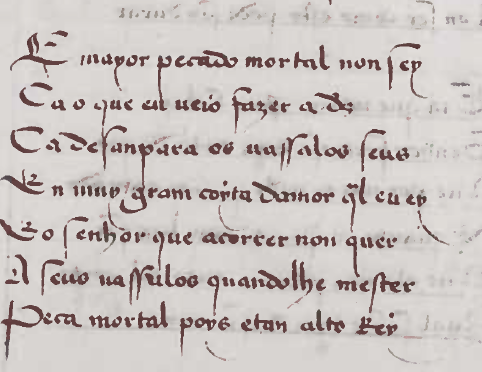 E mayor pecado mortal non sey
Ca o que eu veio fazer a ds
Ca desanpara os vassalos seus
En muy gram coyta damor ql eu ey
E o senhor que acorrer non quer
A seus vassalos quandolhe mester
Peca mortal poys etan alto Rey